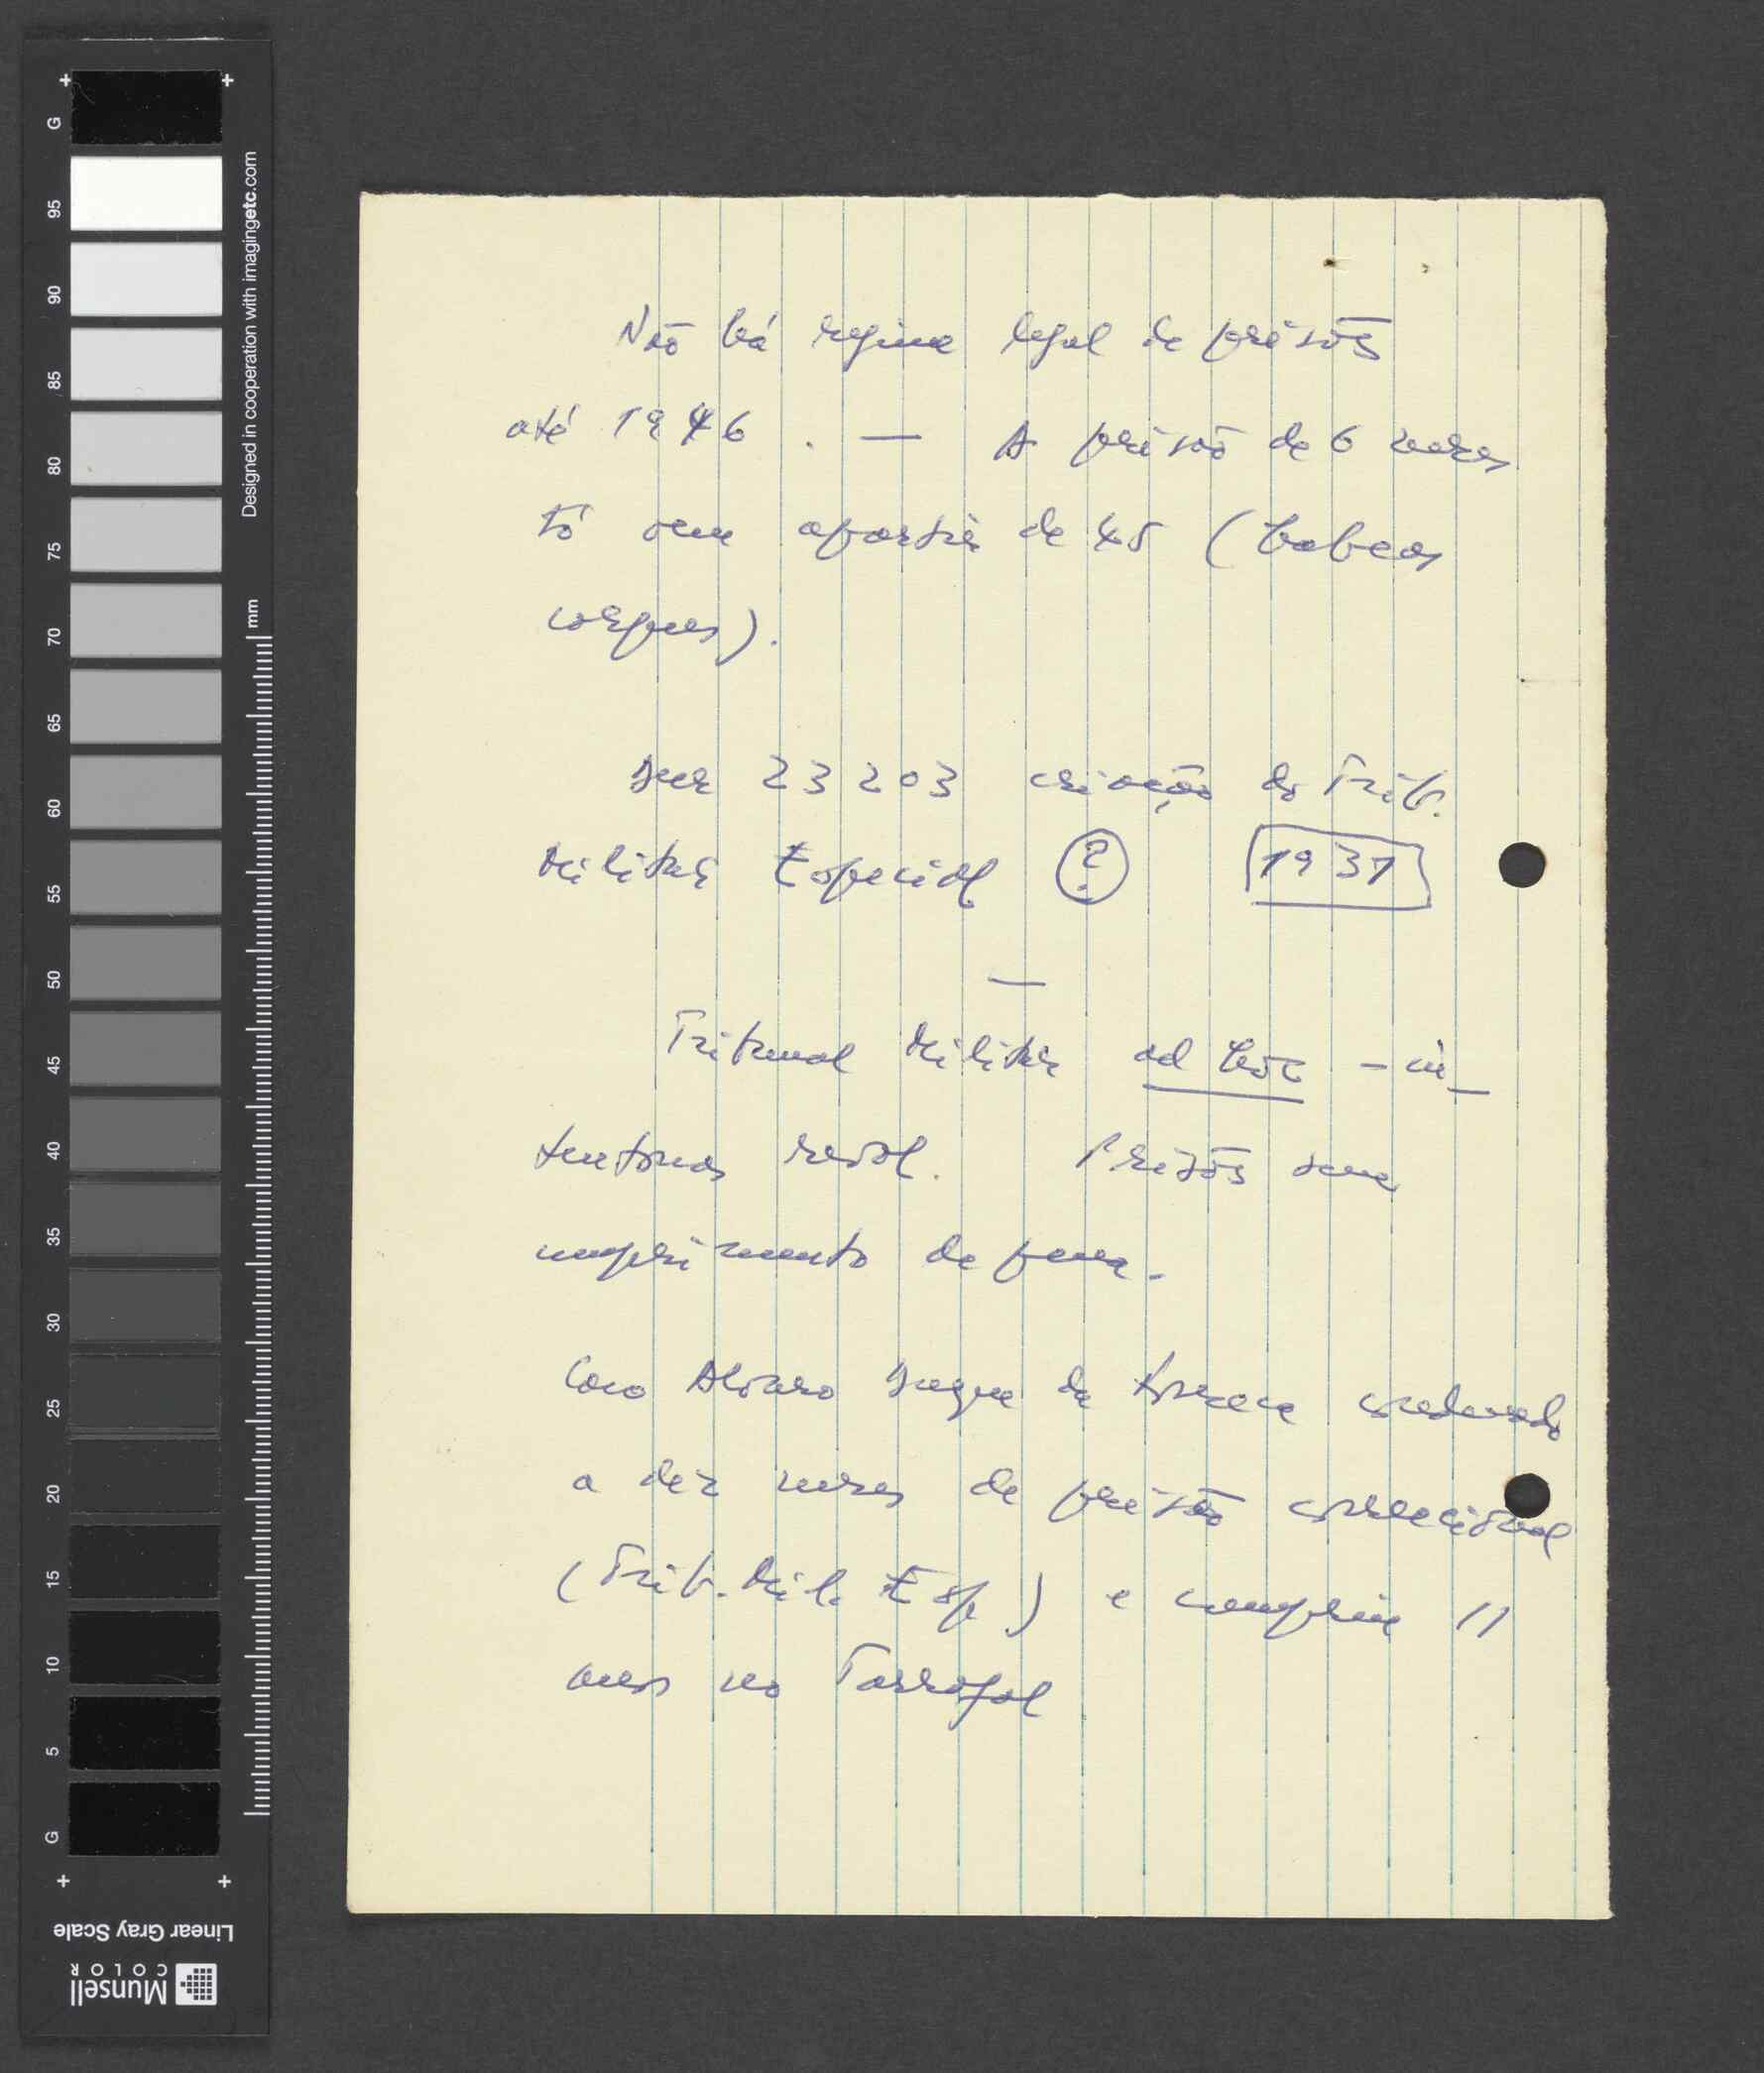 Não há regime legal de prisões
até 1946. — A prisão de 6 meses
só vem apartir de 45 (habeas
corpus).
Dec 23203 criação do Trib.
Militar Especial ? 1931
—
Tribunal Militar ad hoc - in-
tentonas revol. Prisões sem
cumprimento de pena.
Caso Alvaro Duque da Fonseca condenado
a dez meses de prisão correcional
(Trib. Mil. Esp) e cumpriu 11
anos no Tarrafal
G
95
90
85
80
75
70
65
60
55
50
45
40
35
30
25
20
15
10
5
G
Designed in cooperation with imagingetc.com
mm
Linear Gray Scale
Munsell
COLOR